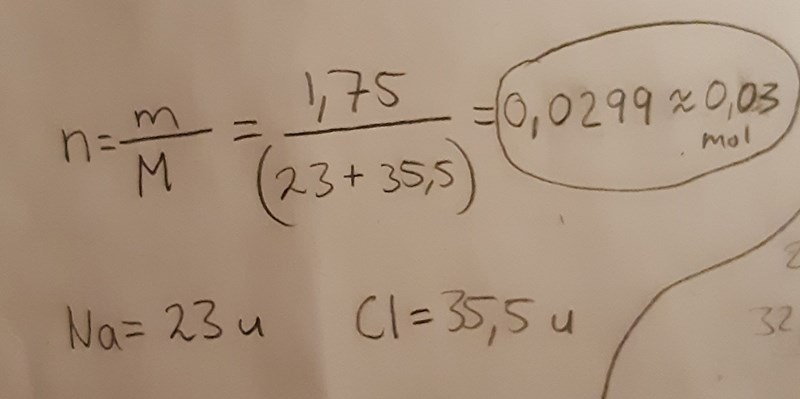 n = m/M = 1,75/(23 + 35,5) = 0,0299 ≈ 0,03 mol
Na = 23 u Cl = 35,5 u
32